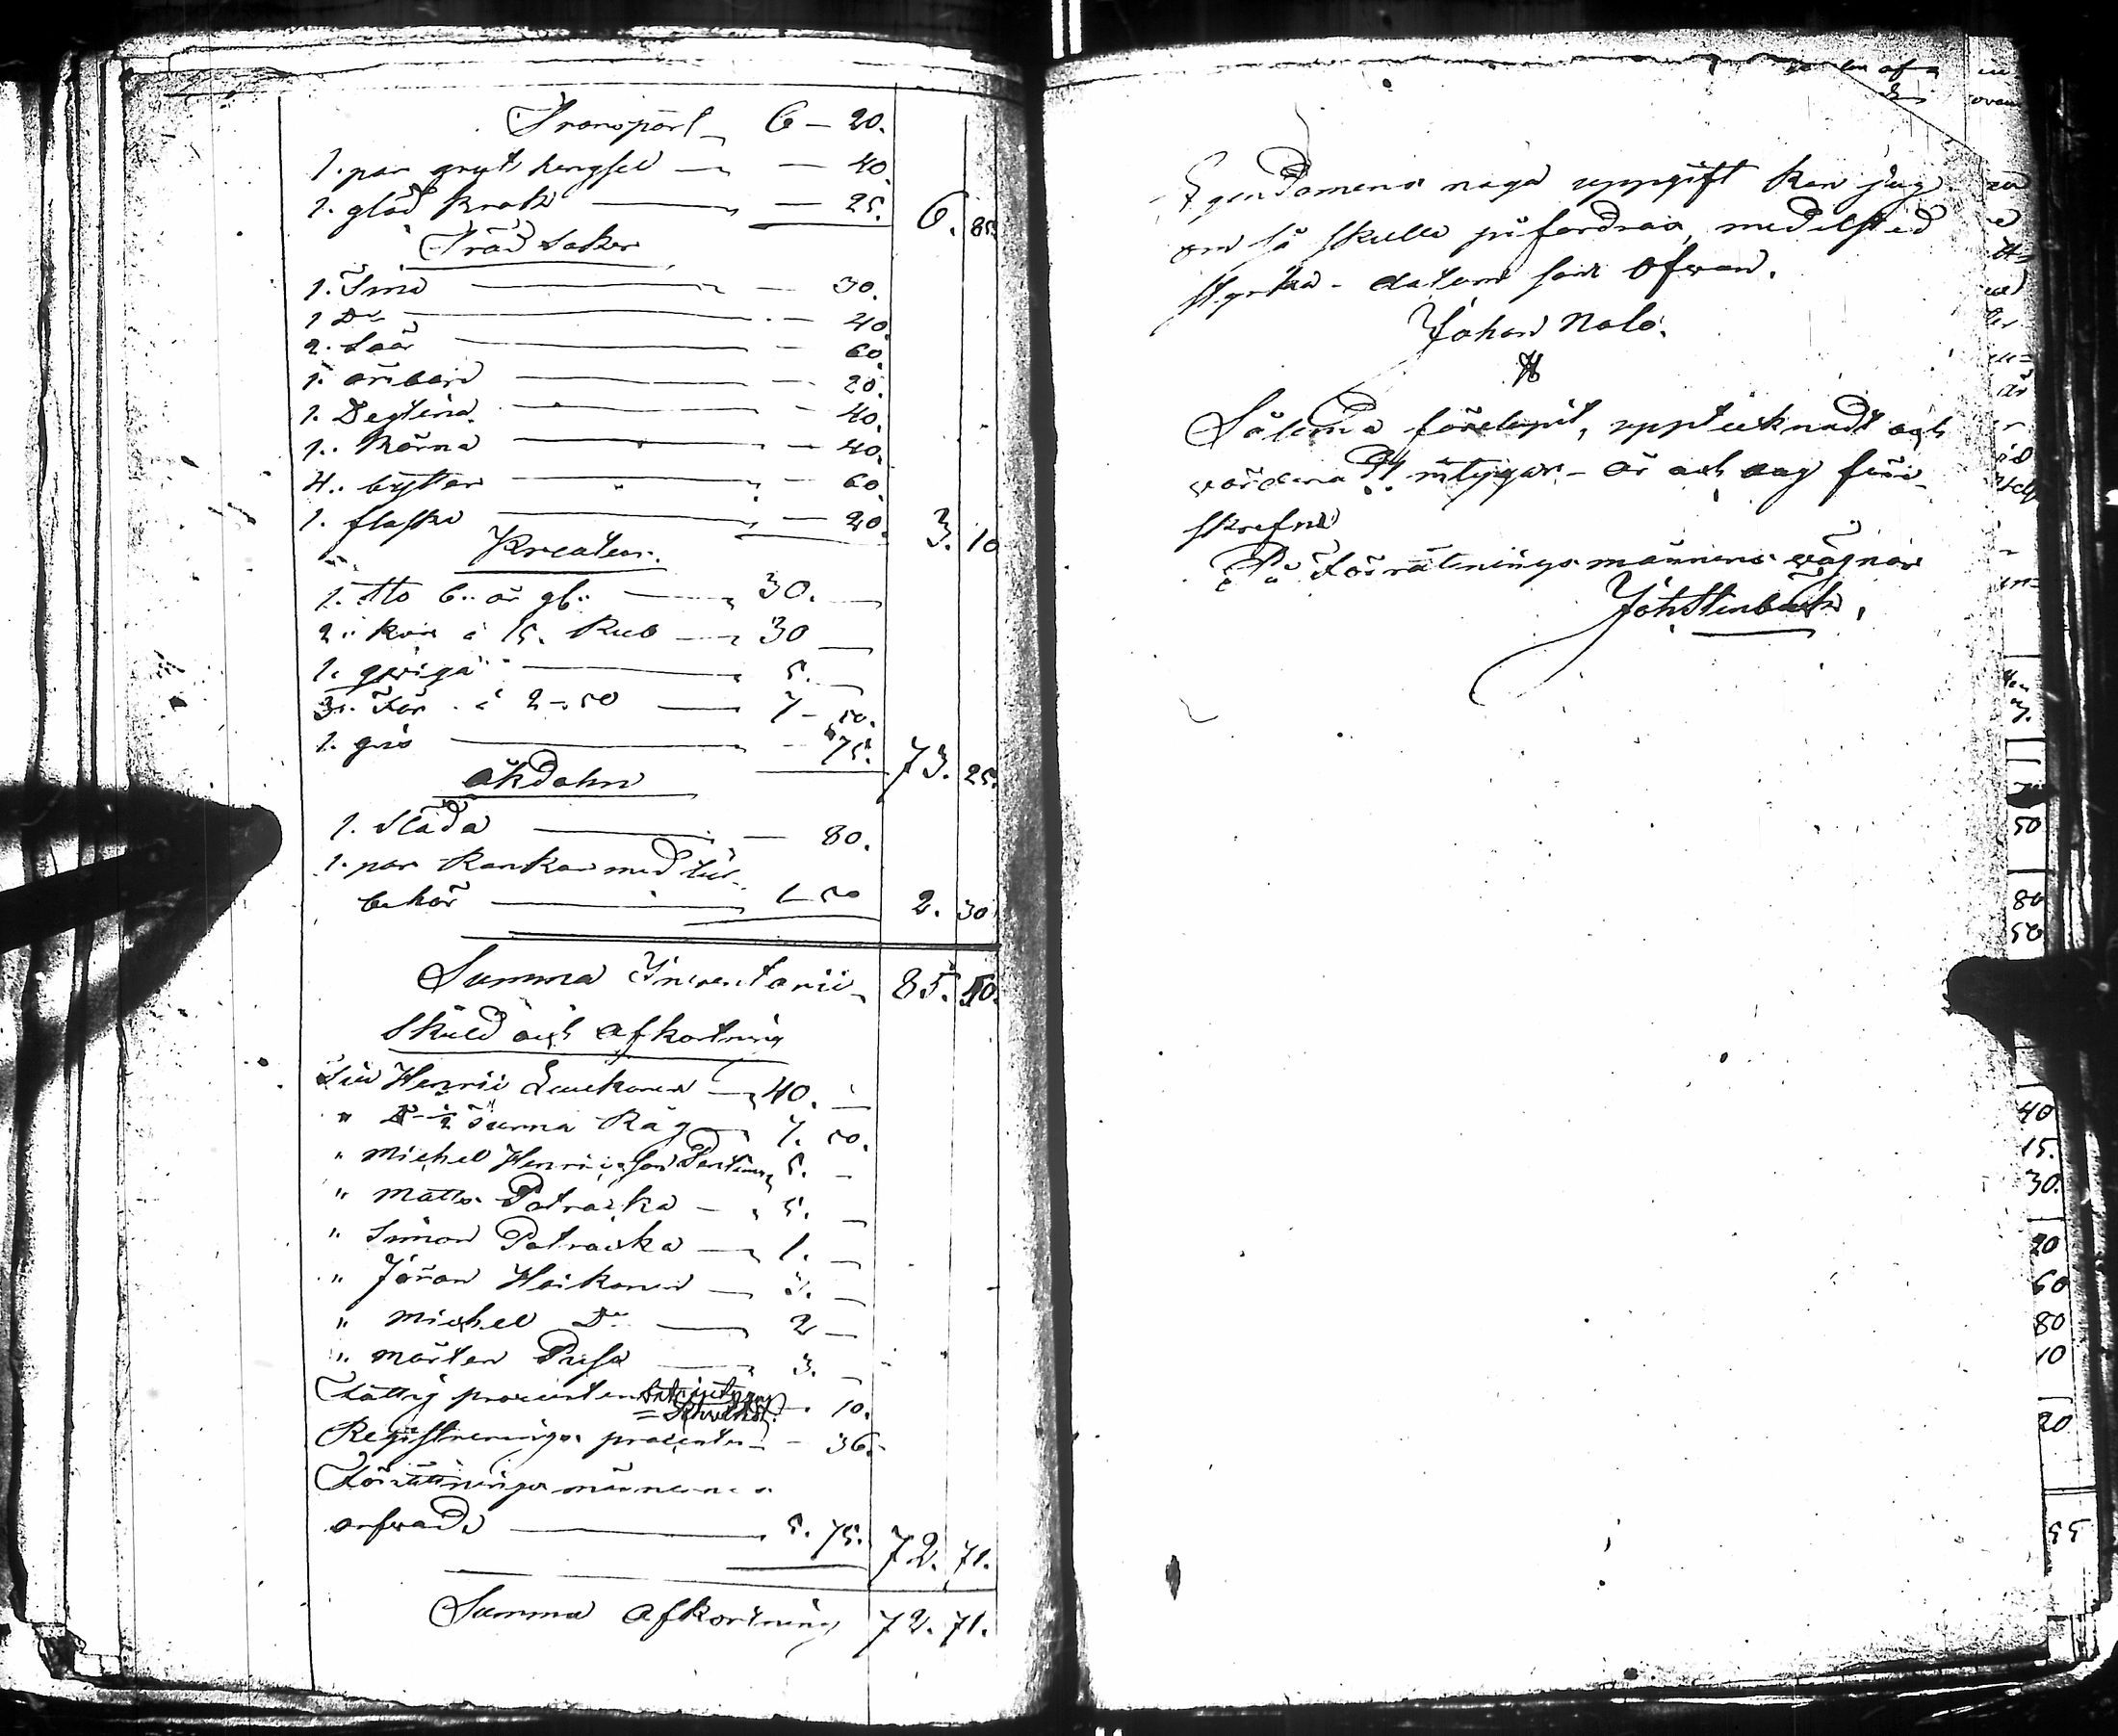 Transport 6 - 20.
1. par gryt hengsel - 40.
1. glöd krok - 25. 6. 85.
Träd saker
1. Tina - 30.
1 Do - 40.
2. Såår - 60.
1. ämbare - 20.
1. Degtina - 40.
1. Kärna - 40.
4. byttor - 60.
1. flaska - 20. 3. 10
Kreatur
1. Sto 6. år gl. 30. -
2. Kor á 15. Rub 30 -
1. qwiga 5. -
3. Får á 2-50 7-50.
1. gris - 75. 73. 25.
Åkdohn
1. Släda - 80.
1. par Kankar med til-
behör 1-50 2. 30
Summa Inventarii 85. 50.
Skuld och Afkortning
Till Henric 40. -
" Do 1/2 Tunna Råg 7. 50.
" Michel Henricsson 5. -
" Matts Patraika 5. -
" Simon Patraika 1. -
" Jöran Haikonen 3. -
" Michel Do 2 -
" Mårten Pusa 3. -
Fattig procenten - 10.
Registrerings procenten - 36.
Förrättnings männernas
arfwode 5. 75. 72. 71.
Summa Afkortning 72. 71.
Egendomens noga uppgift kan jag
om så skulle påfordras, medelst ed
styrka - datum som ofwan.
Johan Nalo.
Således förelupit, upptecknadt och
värderadt intygar - år och dag före-
skrefne
På Förrätnings männens wägnar
Joh Stenbäck.